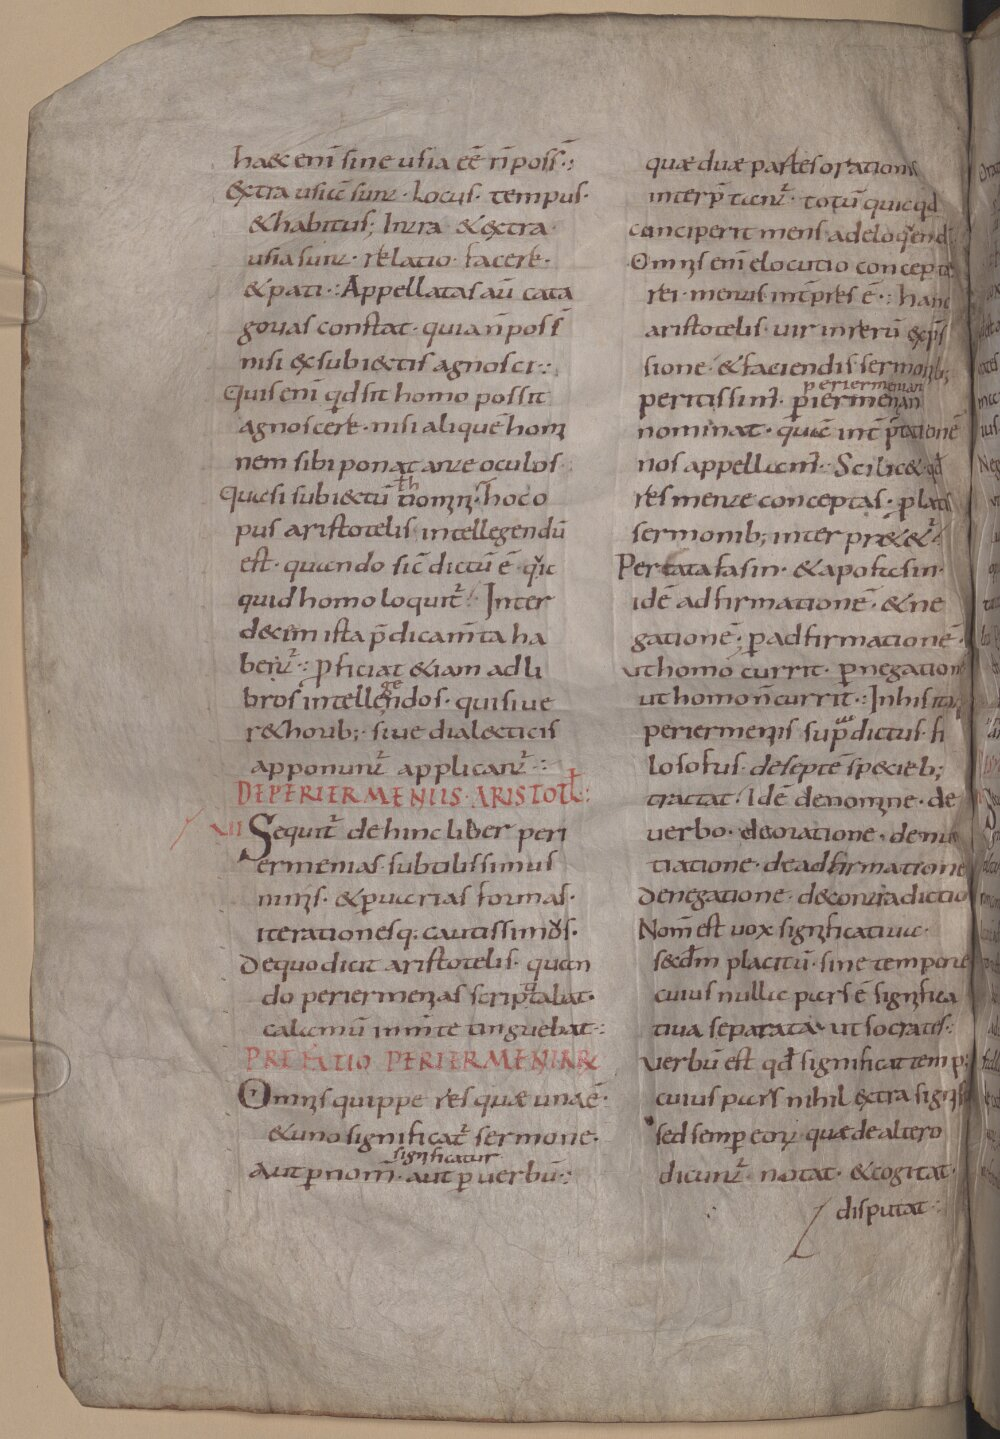 haec enī sine usia eē n̄ poss̄:
extra usiā sunt · Locus · tempus ·
& habitus; Intra & extra
usia sunt · relatio · facere ·
& pati ·: Appellatas aū cata
gorias constat · quia n̄ poss̄
nisi ex subiectis agnosci ·:
Quis enī qd̄ sit homo possit
agnoscere · nisi aliquē homi
nem sibi ponat ante oculos
quasi subiectū nomini · hoc o
pus aristotelis intellegendū
est · quando sic̄ dictū ē · qic
quid homo loquit̄ · Inter
decim ista p̄dicam̄ta ha
bent̄ ·: pficiat & iam ad li
bros intellegendos · qui siue
rhetorib; · siue dialecticis
apponunt̄ applicant̄ ·:
DE PERIERMENIIS ARISTOTL:
XII Sequit̄ dehinc liber peri
ermenias subtilissimus
nimis · & p uarias formas ·
iterationesq; cautissimus ·
De quo dicit aristotelis · quan
do periermenias scriptabat ·
calamū in m̄te tinguebat ·:
PREFATIO PERIERMENIARŪ
Omnis quippe res quae una ē ·
& uno significat̄ sermone ·
significatur
aut p nom̄ · aut p uerbū ·:
quae duae partes orationis
interp̄tant̄ · totū quicqd
conceperit mens ad eloqend
Omnis enī elocutio concepte
rei mentis int̄pres ē ·: hanc
aristotelis · uir in rerū exp̄s
sione & faciendis sermonib;
periermenian
peritissim̄ · periermenian
nominat · quā int̄p̄tationē
nos appellam̄ ·: Scilic& qd̄
res mente conceptas · platis
sermonib; inter pr&&̄
Per catafasin · & apofasin ·
idē adfirmationē · & ne
gationē · p adfirmationē ·
ut homo currit · p negationē
ut homo n̄ currit ·: In his itaq
periermeniis sup̄dictus fi
losofus · de septē specieb;
tractat · Idē de nomine · de
uerbo · de oratione · de nun
tiatione · de adfirmatione
de negatione · de contradictio
Nom̄ est uox significatiua ·
secd̄m placitū · sine tempore
cuius nulla pars ē significa
tiua separata · ut socrates ·:
Verbū est qd̄ significat temp;
cuius pars nihil extra signifi
sed semp eorū quae de altero
dicunt̄ notat · & cogitat ·
disputat ·: